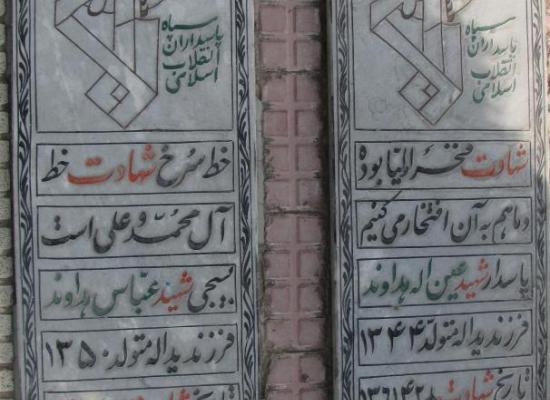 سپاه
پاسداران
انقلاب
اسلامی
شهادت فخر اولیا بوده
و ما هم به آن افتخار می کنیم
پاسدار شهید عین اله هداوند
فرزند یداله متولد ۱۳۴۴
تاریخ شهادت
سپاه
پاسداران
انقلاب
اسلامی
خط سرخ شهادت خط
آل محمّد و علی است
بسیجی شهید عبّاس هداوند
فرزند یداله متولد ۱۳۵۰
تاریخ